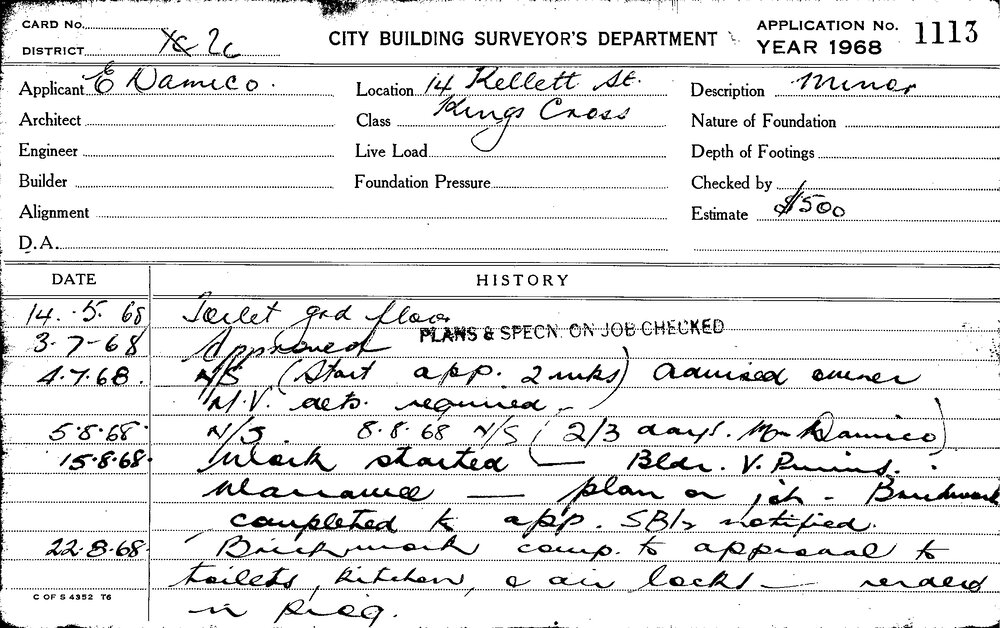 CARD No.
DISTRICT
CITY BUILDING SURVEYOR'S DEPARTMENT
APPLICATION No. 1113
YEAR 1968
Applicant E Damico.
Location 14 Kellett St.
Kings Cross
Description Minor
Architect
Class
Nature of Foundation
Engineer
Live Load
Depth of Footings
Builder
Foundation Pressure
Checked by
Alignment
Estimate $500
D.A.
DATE HISTORY
14.5.68 Toilet grd floor
PLANS & SPECN. ON JOB CHECKED
3-7-68 Approved
4.7.68. N/S (Start app. 2 wks) advised owner
M.V. dets. required.
5.8.68. N/S. 8.8.68 N/S (2/3 days. Mr Damico)
15.8.68. Work started — Bldr. V.
— plan on job - Brickwork
completed to app. notified.
22.8.68. Brickwork comp. to approval to
toilets, kitchen, & air locks —
in prog.
C OF S 4352 T6